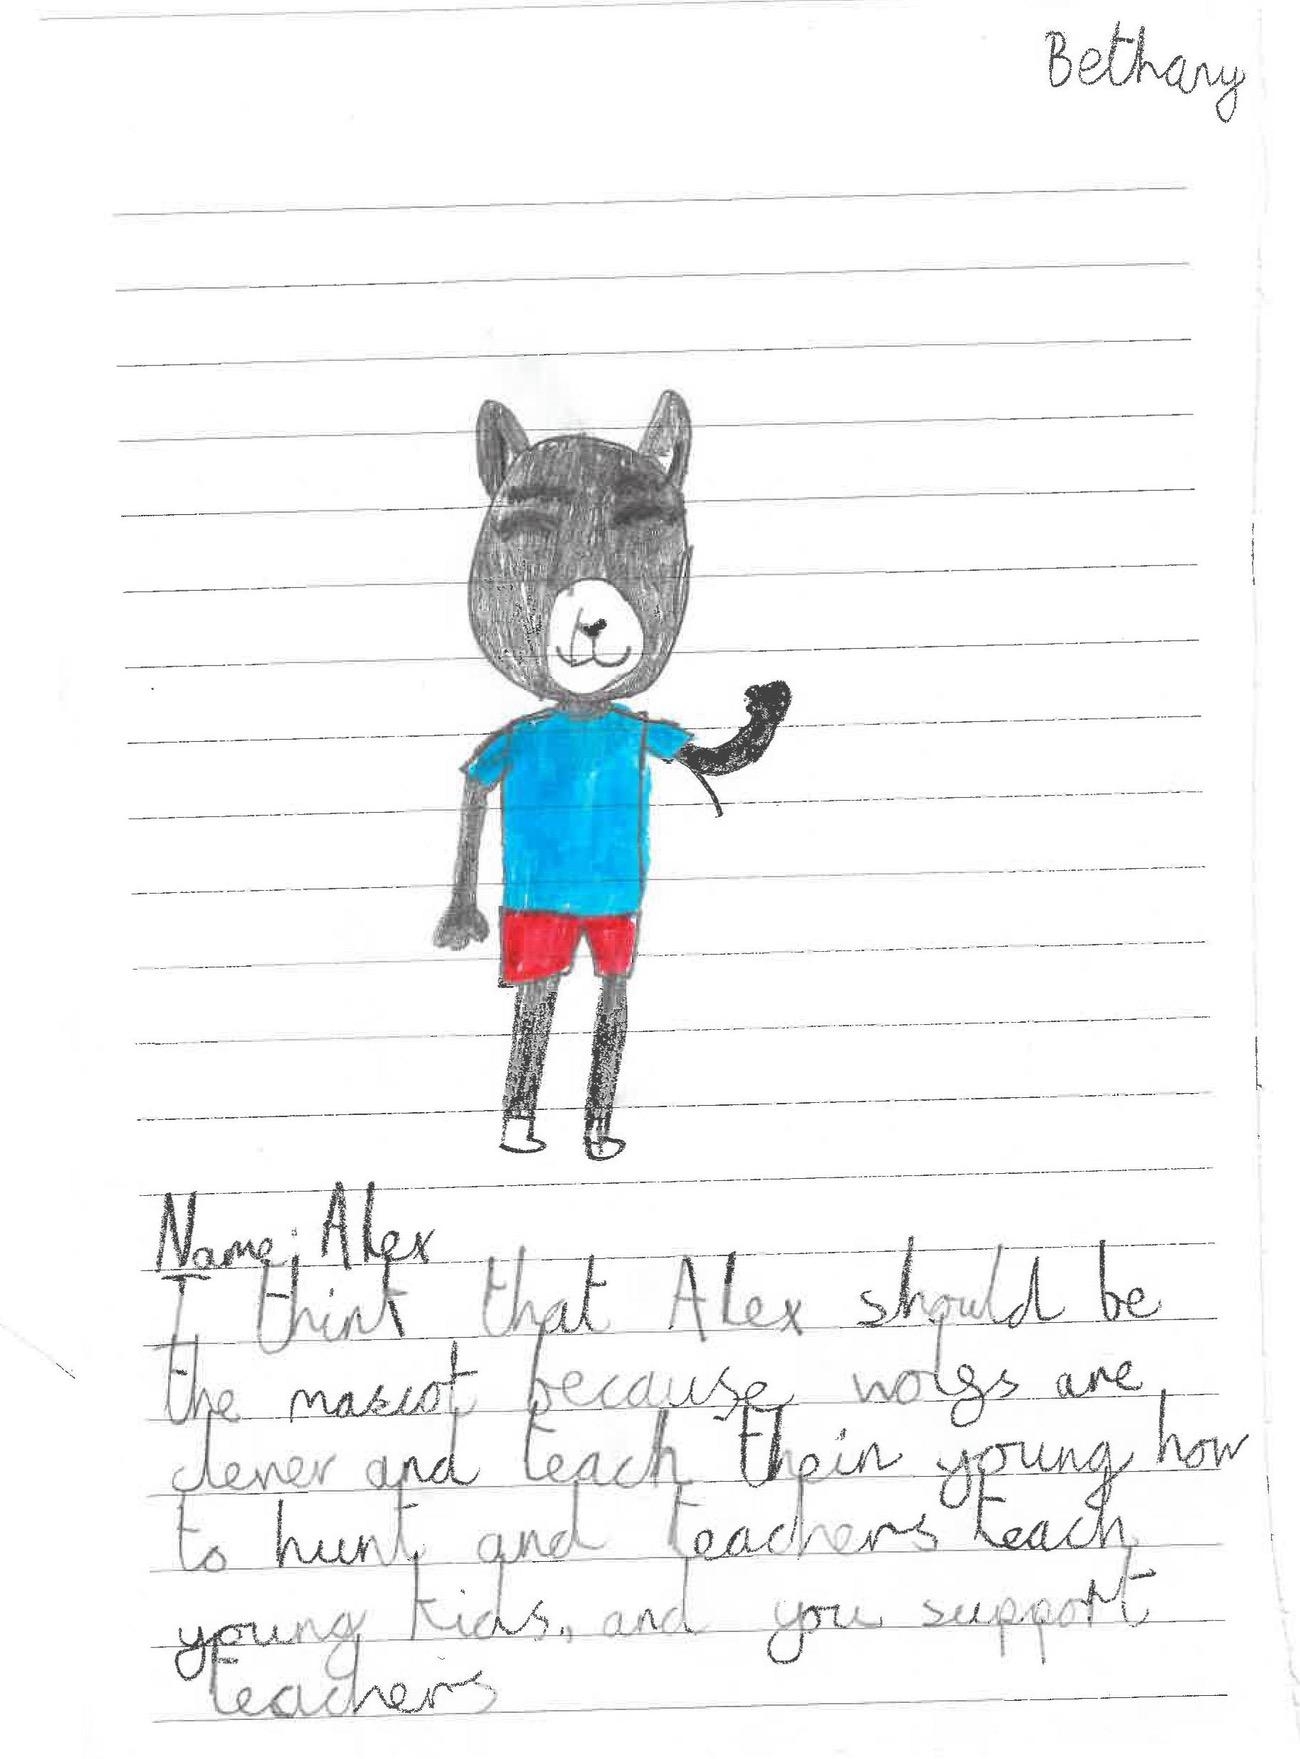 Bethany
Name: Alex
I think that Alex should be
the mascot because wolfs are
clever and teach their young how
to hunt and teachers teach
young kids, and you support
teachers